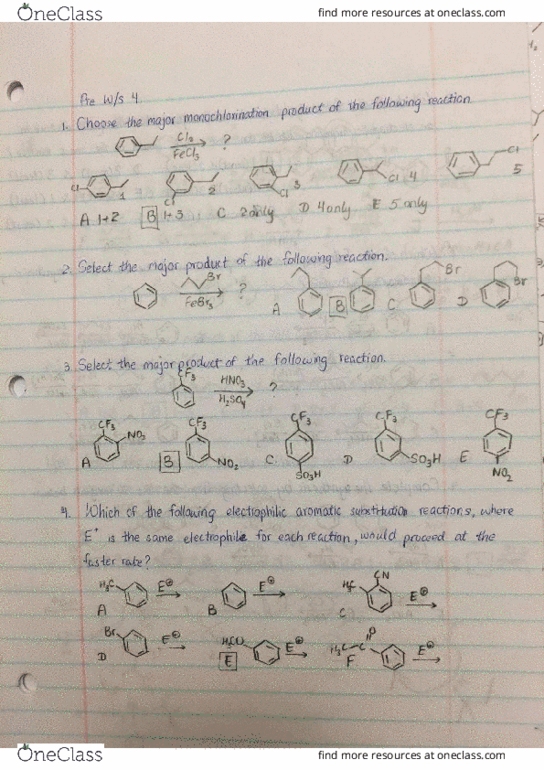 OneClass
find more resources at oneclass.com
Pre W/s 4.
1. Choose the major monochlorination product of the following reaction.
Cl₂
FeCl₃
?
Cl 1
Cl 2
Cl 3
Cl 4
Cl 5
A 1+2 B 1+3 C 2 only D 4 only E 5 only
2. Select the major product of the following reaction.
Br
FeBr₃
?
A B C Br D Br
3. Select the major product of the following reaction.
CF₃
HNO₃
H₂SO₄
?
CF₃ CF₃ CF₃ CF₃ CF₃
A NO₂ B NO₂ C SO₃H D SO₃H E NO₂
4. Which of the following electrophilic aromatic substitution reactions, where
E⁺ is the same electrophile for each reaction, would proceed at the
faster rate?
H₃C E⊕ A
B E⊕
H₃C CN E⊕ C
Br E⊕ D
H₃CO E⊕ E
H₃C-C O E⊕ F
OneClass
find more resources at oneclass.com